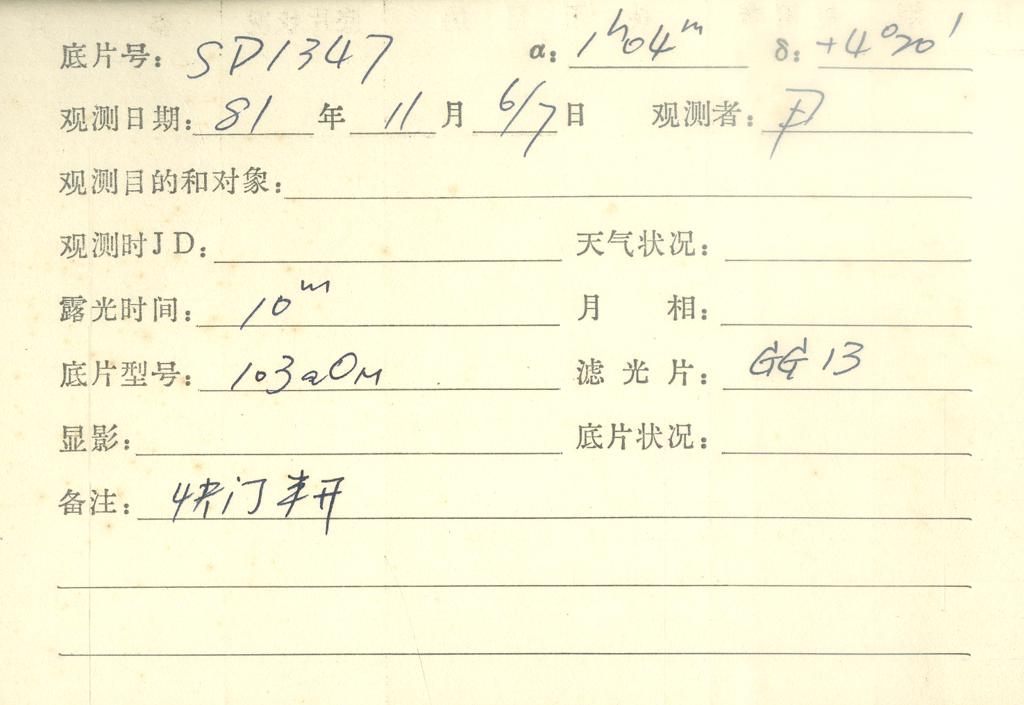 底片号: SD1347 α: 1ʰ04ᵐ δ: +4°20′
观测日期: 81 年 11 月 6/7 日 观测者:
观测目的和对象:
观测时JD: 天气状况:
露光时间: 10ᵐ 月 相:
底片型号: 103aOM 滤光片: GG13
显影: 底片状况:
备注: 快门未开